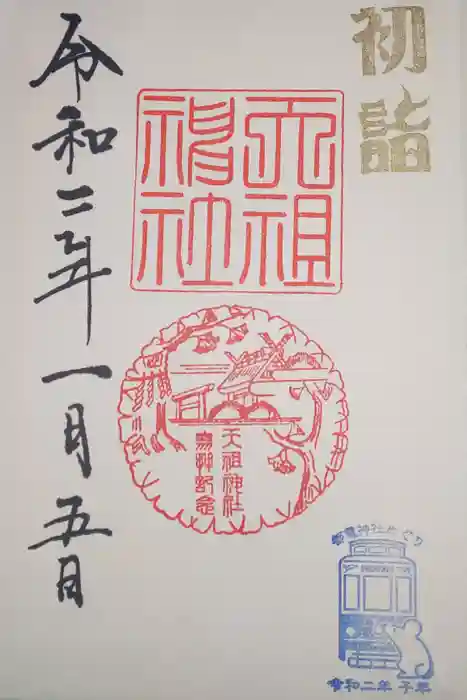 初詣
天祖神社
天祖神社
参拝記念
令和二年一月五日
都電神社めぐり
令和二年 子年